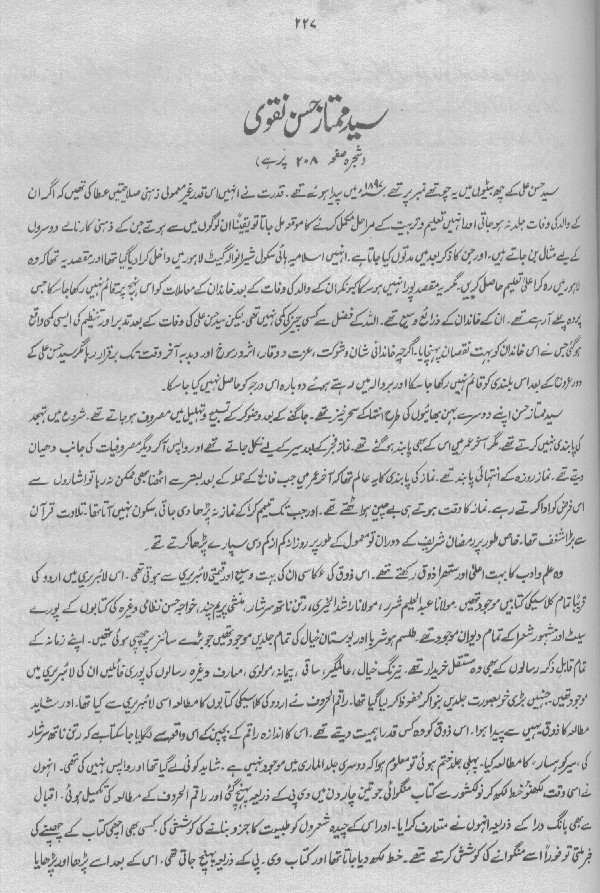 ۲۲۷
سید ممتاز حسن نقوی
(شجرہ صفحہ ۲۰۸ پر ہے)
سید حسن علی کے چھ بیٹوں میں یہ چوتھے نمبر پر تھے۔ ۱۸۹۷ء میں پیدا ہوئے تھے۔ قدرت نے انہیں اس قدر غیر معمولی ذہنی صلاحیتیں عطا کی تھیں کہ اگر ان
کے والد کی وفات جلد نہ ہو جاتی اور انہیں تعلیم و تربیت کے مراحل مکمل کرنے کا موقعہ مل جاتا تو یقیناً ان لوگوں میں سے ہوتے جن کے ذہنی کارنامے دوسروں
کے لیے مثال بن جاتے ہیں۔ اور جن کا ذکر بعد میں مدتوں کیا جاتا ہے۔ انہیں اسلامیہ ہائی سکول شیرانوالہ گیٹ لاہور میں داخل کرایا گیا تھا اور مقصد یہ تھا کہ وہ
لاہور میں رہ کر اعلیٰ تعلیم حاصل کریں۔ مگر یہ مقصد پورا نہیں ہو سکا کیونکہ ان کے والد کی وفات کے بعد خاندان کے معاملات کو اس نہج پر قائم نہیں رکھا جا سکا جس
پر وہ چلے آ رہے تھے۔ ان کے خاندان کے ذرائع وسیع تھے۔ اللہ کے فضل سے کسی چیز کی کمی نہیں تھی لیکن سید حسن علی کی وفات کے بعد تدبیر اور تنظیم کی ایسی کمی واقع
ہو گئی جس نے اس خاندان کو بہت نقصان پہنچایا۔ اگرچہ خاندانی شان و شوکت، عزت و وقار، اثر و رسوخ اور دبدبہ آخر وقت تک برقرار رہا مگر سید حسن علی کے
دور عروج کے بعد اس بلندی کو قائم نہیں رکھا جا سکا اور بروالہ میں رہتے ہوئے دوبارہ اس درجہ کو حاصل نہیں کیا جا سکا۔
سید ممتاز حسن اپنے دوسرے بہن بھائیوں کی طرح انتہا کے سحر خیز تھے۔ جاگنے کے بعد وضو کر کے تسبیح و تہلیل میں مصروف ہو جاتے تھے۔ شروع میں تہجد
کی پابندی نہیں کرتے تھے۔ مگر آخر عمر میں اس کے بھی پابند ہو گئے تھے۔ نماز فجر کے بعد سیر کے لیے نکل جاتے تھے اور واپس آ کر دیگر مصروفیات کی جانب دھیان
دیتے تھے۔ نماز روزہ کے انتہائی پابند تھے۔ نماز کی پابندی کا یہ عالم تھا کہ آخر عمر میں جب فالج کے حملہ کے بعد بستر سے اٹھنا بھی ممکن نہ رہا تو اشاروں سے
اس فرض کو ادا کرتے رہے۔ نماز کا وقت ہوتے ہی بے چین ہو اٹھتے تھے۔ اور جب تک تیمم کرا کے نماز نہ پڑھا دی جاتی، سکون نہیں آتا تھا۔ تلاوت قرآن
سے بڑا شغف تھا۔ خاص طور پر رمضان شریف کے دوران تو معمول کے طور پر روزانہ کم از کم دس سپارے پڑھا کرتے تھے۔
وہ علم و ادب کا بہت اعلیٰ اور ستھرا ذوق رکھتے تھے۔ اس ذوق کی عکاسی ان کی بہت وسیع اور قیمتی لائبریری سے ہوتی تھی۔ اس لائبریری میں اردو کی
قریباً تمام کلاسیکی کتابیں موجود تھیں۔ مولانا عبدالحلیم شرر، مولانا راشد الخیری، رتن ناتھ سرشار، منشی پریم چند، خواجہ حسن نظامی وغیرہ کی کتابوں کے پورے
سیٹ اور مشہور شعرا کے تمام دیوان موجود تھے۔ طلسم ہوشربا اور بوستان خیال کی تمام جلدیں موجود تھیں جو بڑے سائز پر چھپی ہوئی تھیں۔ اپنے زمانہ کے
تمام قابل ذکر رسالوں کے بھی وہ مستقل خریدار تھے۔ نیرنگ خیال، عالمگیر، ساقی، پیمانہ، مولوی، معارف وغیرہ رسالوں کی پوری فائلیں ان کی لائبریری میں
موجود تھیں۔ جنہیں بڑی خوبصورت جلدیں بنوا کر محفوظ کر لیا گیا تھا۔ راقم الحروف نے اردو کی کلاسیکی کتابوں کا مطالعہ اسی لائبریری سے کیا تھا۔ اور شاید
مطالعہ کا ذوق یہیں سے پیدا ہوا۔ اس ذوق کو وہ کس قدر اہمیت دیتے تھے۔ اس کا اندازہ راقم کے بچپن کے اس واقعہ سے لگایا جا سکتا ہے کہ رتن ناتھ سرشار
کی، سیر کوہسار، کا مطالعہ کیا۔ پہلی جلد ختم ہوئی تو معلوم ہوا کہ دوسری جلد الماری میں موجود نہیں ہے۔ شاید کوئی لے گیا تھا اور واپس نہیں کی تھی۔ انہوں
نے اسی وقت لکھنؤ خط لکھ کر نولکشور سے کتاب منگوائی جو تین چار دن میں وی پی کے ذریعہ پہنچ گئی اور راقم الحروف کے مطالعہ کی تکمیل ہوئی۔ اقبال
سے بھی بانگ درا کے ذریعہ انہوں نے متعارف کرایا۔ اور اس کے چیدہ شعروں کو طبیعت کا جزو بنانے کی کوشش کی۔ کسی بھی اچھی کتاب کے چھپنے کی
خبر ملتی تو فوراً اسے منگوانے کی کوشش کرتے تھے۔ خط لکھ دیا جاتا تھا اور کتاب وی۔ پی کے ذریعہ پہنچ جاتی تھی۔ اس کے بعد اسے پڑھا اور پڑھایا